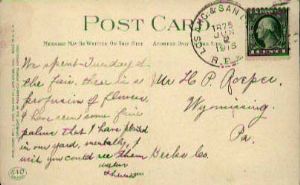 POST CARD
MESSAGE MAY BE WRITTEN ON THIS SIDE
ADDRESS ONLY
JUN
1915
R.P.O.
We spent Tuesday at
the fair, there is a
profusion of flowers,
I have seen some fine
palms that I have placed
in our yard, mentally, I
wish you could see them
Mr H. P.
Wyomissing
Pa.
Berks Co.